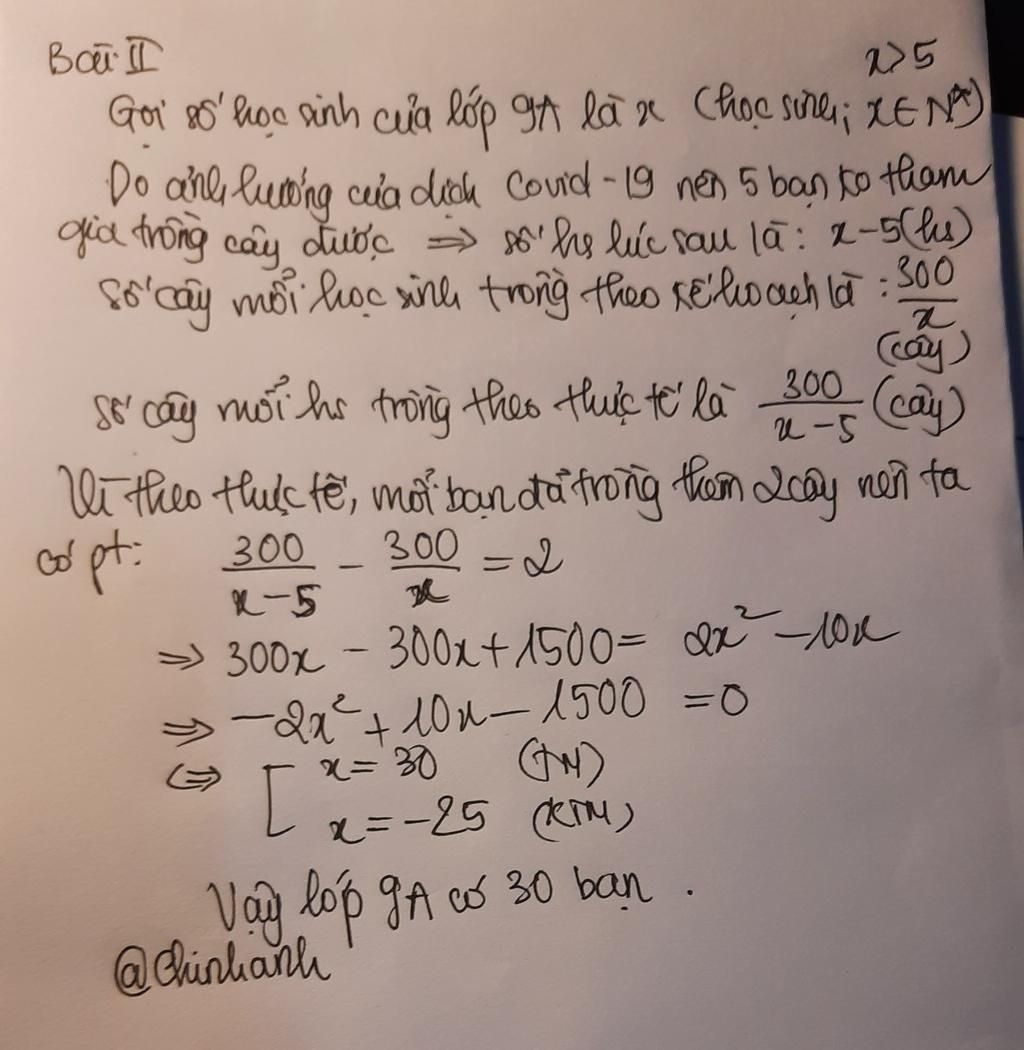 Bài II
x>5
Gọi số học sinh của lớp 9A là x (học sinh; x∈N*)
Do ảnh hưởng của dịch Covid-19 nên 5 bạn ko tham
gia trồng cây được ⇒ số hs lúc sau là: x-5(hs)
Số cây mỗi học sinh trồng theo kế hoạch là : 300/x
(cây)
Số cây mỗi hs trồng theo thực tế là 300/(x-5) (cây)
Vì theo thực tế, mỗi bạn đã trồng thêm 2 cây nên ta
có pt: 300/(x-5) - 300/x = 2
⇒ 300x - 300x + 1500 = 2x² - 10x
⇒ -2x² + 10x - 1500 = 0
⇔ [ x = 30 (TM)
x = -25 (KTM)
Vậy lớp 9A có 30 bạn .
@chinhanh